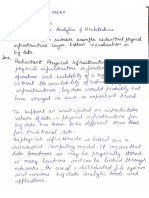 PAPER
Analytics & Architecture
suitable example redundant physical
infrastructure layer. Explain visualization in
big data.
Ans. Redundant Physical Infrastructure
physical infrastructure is fundamental
operation and scalability of a big
availability of robust
infrastructure, big data would probably not
have emerged is such an important trend
To support an unanticipated or unpredictable
volume of data a physical infrastructure for
big data has been be different than that
for traditional data.
physical infrastructure is based on a
distributed computing model. It means that
may be physically stored
in many locations and can be linked through
networks, the use of a distributed file system
and various big data analytic tools and
applications.